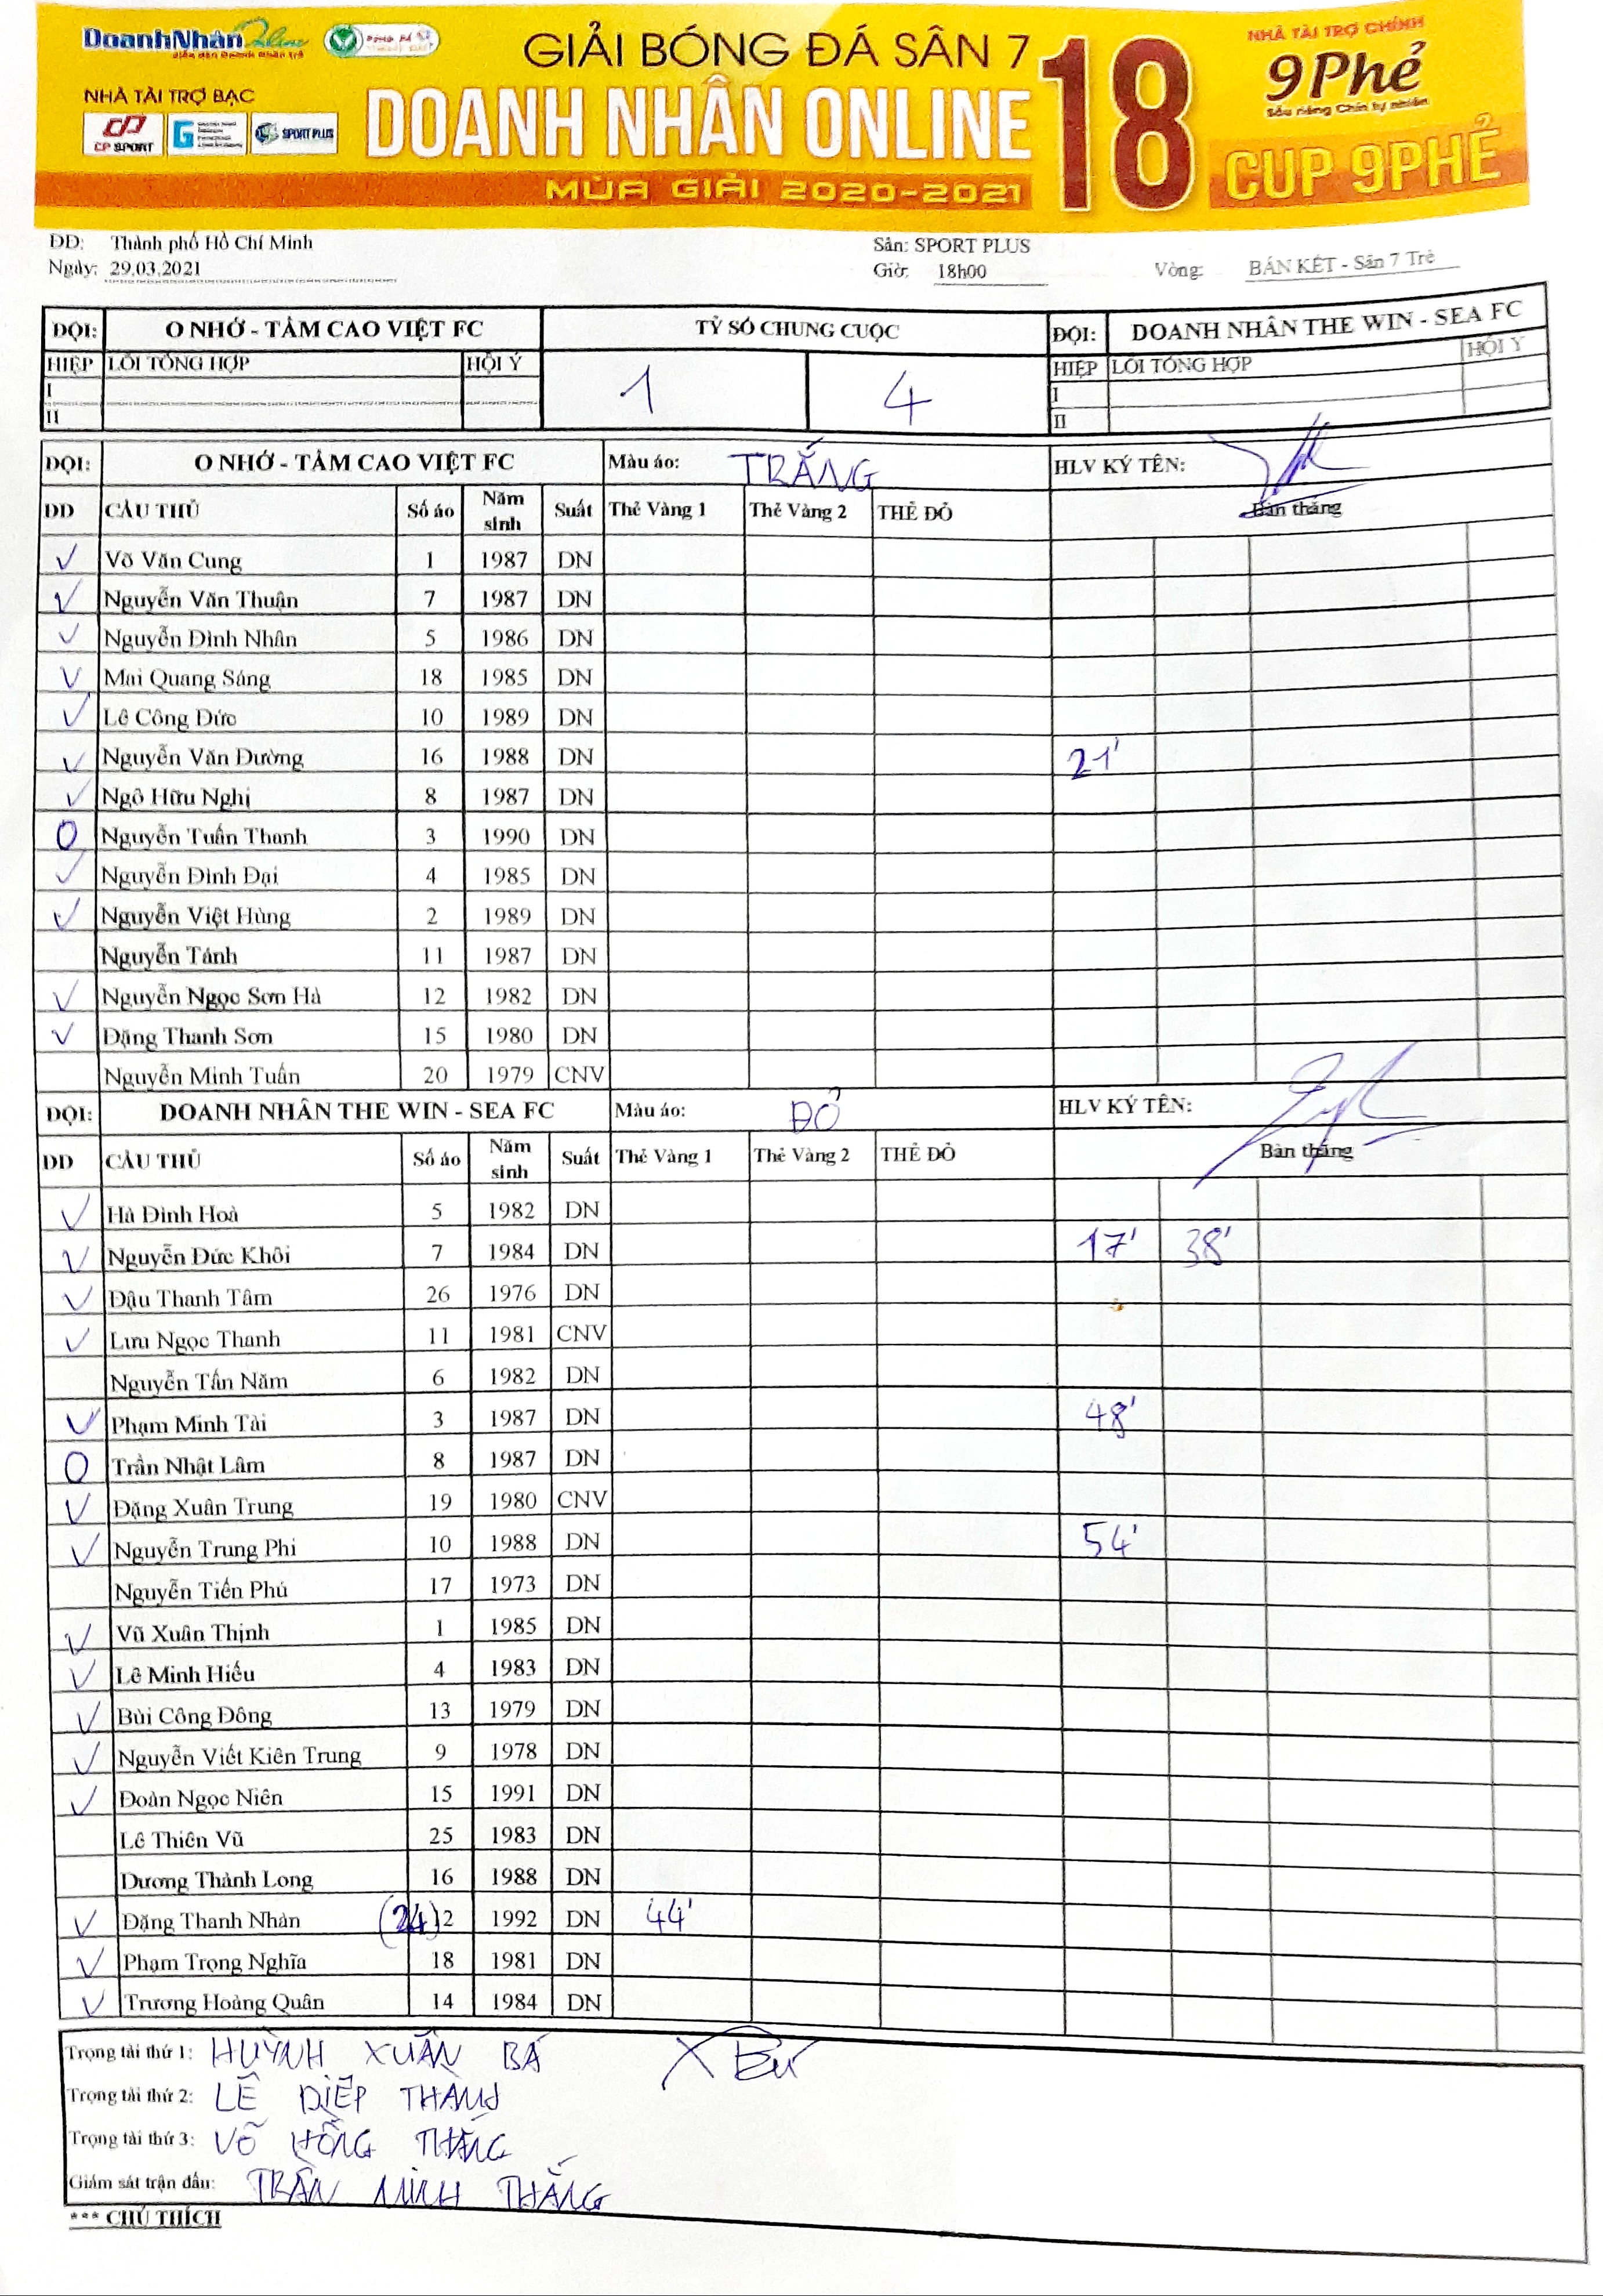 DoanhNhân Online
GIẢI BÓNG ĐÁ SÂN 7
DOANH NHÂN ONLINE
MÙA GIẢI 2020-2021
18
NHÀ TÀI TRỢ CHÍNH
9Phẻ
Sầu riêng Chín tự nhiên
CUP 9PHẺ
NHÀ TÀI TRỢ BẠC
CP SPORT
SPORT PLUS
ĐD: Thành phố Hồ Chí Minh Sân: SPORT PLUS
Ngày: 29.03.2021 Giờ: 18h00 Vòng: BÁN KẾT - Sân 7 Trẻ
ĐỘI: O NHỚ - TẦM CAO VIỆT FC TỶ SỐ CHUNG CUỘC ĐỘI: DOANH NHÂN THE WIN - SEA FC
HIỆP LỖI TỔNG HỢP HỘI Ý 1 4 HIỆP LỖI TỔNG HỢP HỘI Ý
I I
II II
ĐỘI: O NHỚ - TẦM CAO VIỆT FC Màu áo: TRẮNG HLV KÝ TÊN:
DD CẦU THỦ Số áo Năm sinh Suất Thẻ Vàng 1 Thẻ Vàng 2 THẺ ĐỎ Bàn thắng
✓ Võ Văn Cung 1 1987 DN
✓ Nguyễn Văn Thuận 7 1987 DN
✓ Nguyễn Đình Nhân 5 1986 DN
✓ Mai Quang Sáng 18 1985 DN
✓ Lê Công Đức 10 1989 DN
✓ Nguyễn Văn Đường 16 1988 DN 21'
✓ Ngô Hữu Nghị 8 1987 DN
O Nguyễn Tuấn Thanh 3 1990 DN
✓ Nguyễn Đình Đại 4 1985 DN
✓ Nguyễn Việt Hùng 2 1989 DN
Nguyễn Tánh 11 1987 DN
✓ Nguyễn Ngọc Sơn Hà 12 1982 DN
✓ Đặng Thanh Sơn 15 1980 DN
Nguyễn Minh Tuấn 20 1979 CNV
ĐỘI: DOANH NHÂN THE WIN - SEA FC Màu áo: ĐỎ HLV KÝ TÊN:
DD CẦU THỦ Số áo Năm sinh Suất Thẻ Vàng 1 Thẻ Vàng 2 THẺ ĐỎ Bàn thắng
✓ Hà Đình Hoà 5 1982 DN
✓ Nguyễn Đức Khôi 7 1984 DN 17' 38'
✓ Đậu Thanh Tâm 26 1976 DN
✓ Lưu Ngọc Thanh 11 1981 CNV
Nguyễn Tấn Năm 6 1982 DN
✓ Phạm Minh Tài 3 1987 DN 48'
O Trần Nhật Lâm 8 1987 DN
✓ Đặng Xuân Trung 19 1980 CNV
✓ Nguyễn Trung Phi 10 1988 DN 54'
Nguyễn Tiến Phú 17 1973 DN
✓ Vũ Xuân Thịnh 1 1985 DN
✓ Lê Minh Hiếu 4 1983 DN
✓ Bùi Công Đông 13 1979 DN
✓ Nguyễn Viết Kiên Trung 9 1978 DN
✓ Đoàn Ngọc Niên 15 1991 DN
Lê Thiên Vũ 25 1983 DN
Dương Thành Long 16 1988 DN
✓ Đặng Thanh Nhàn (24) 12 1992 DN 44'
✓ Phạm Trọng Nghĩa 18 1981 DN
✓ Trương Hoàng Quân 14 1984 DN
Trọng tài thứ 1: HUỲNH XUÂN BÁ
Trọng tài thứ 2: LÊ DIỆP THÀNH
Trọng tài thứ 3: VÕ HỒNG THẮNG
Giám sát trận đấu: TRẦN MINH THẮNG
*** CHÚ THÍCH